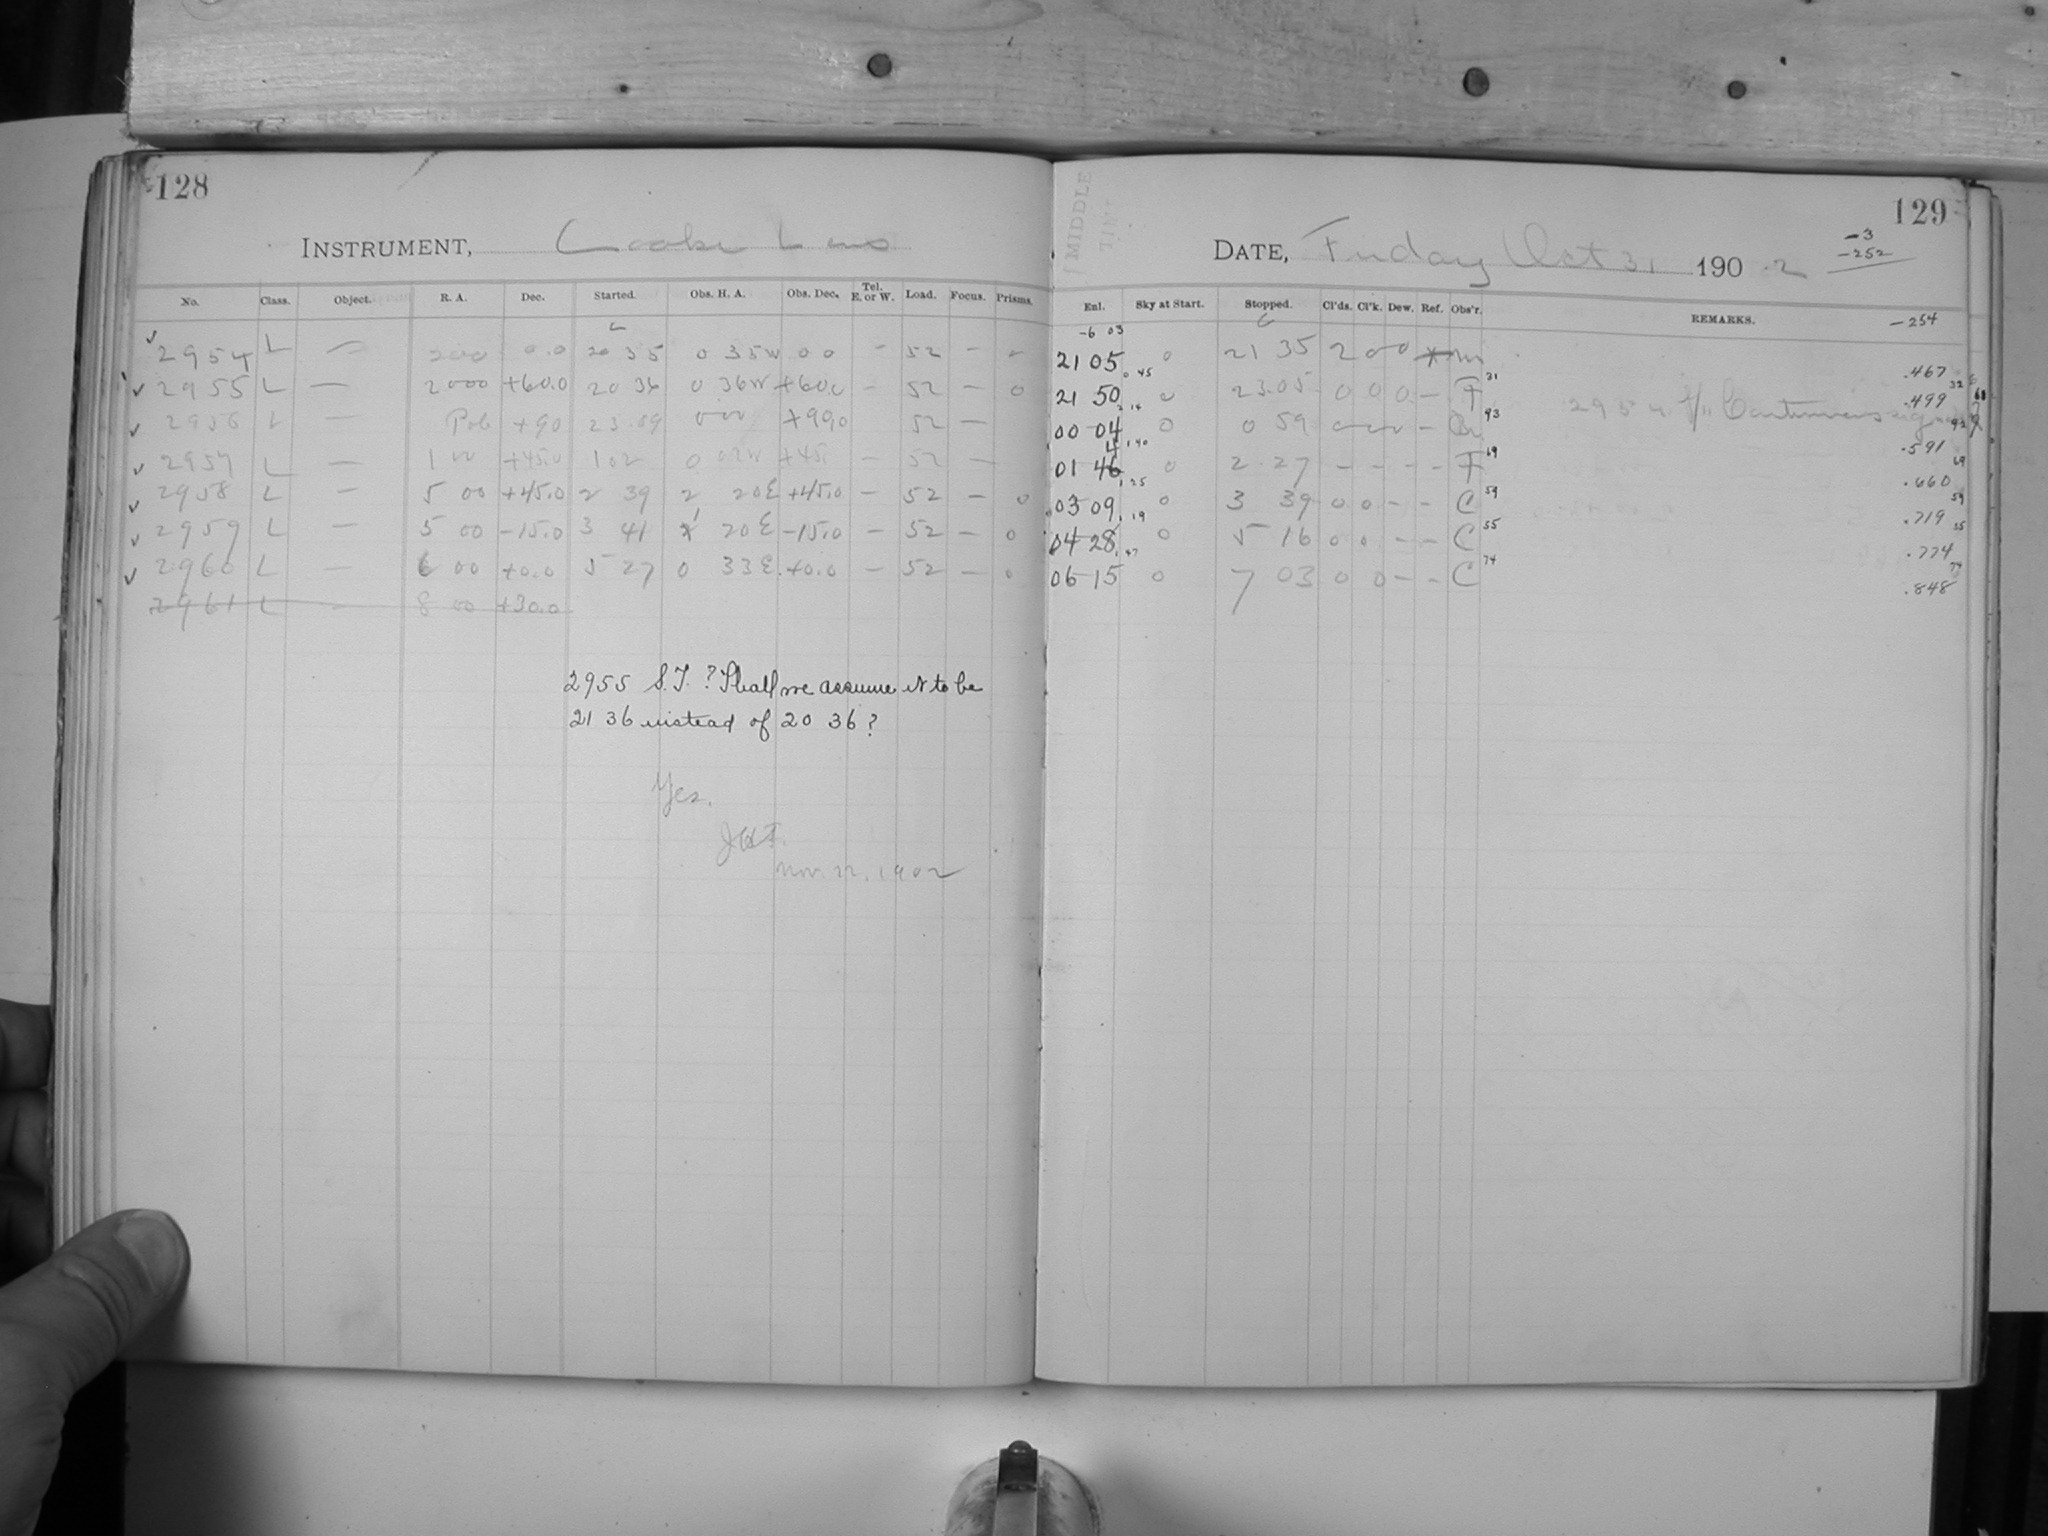 128
INSTRUMENT, Cooke Lens
No. Class. Object. R. A. Dec. Started. Obs. H. A. Obs. Dec. Tel. E. or W. Load. Focus. Prisms.
✓ 2954 L — 20 00 0.0 20 35 0 35W 0 0 - 52 - 0
✓ 2955 L — 20 00 +60.0 20 36 0 36W +60.0 - 52 - 0
✓ 2956 L — Pole +90 23.09 0 00 +90.0 52 -
✓ 2957 L — 1 00 +45.0 1 02 0 02W +45. - 52 -
✓ 2958 L — 5 00 +45.0 2 39 2 20E +45.0 - 52 - 0
✓ 2959 L — 5 00 -15.0 3 41 1 20E -15.0 - 52 - 0
✓ 2960 L — 6 00 +0.0 5 27 0 33E +0.0 - 52 - 0
2961 L - 8 00 +30.0
2955 S.T. ? Shall we assume it to be
21 36 instead of 20 36 ?
Yes.
Nov. 22, 1902
129
MIDDLE
DATE, Friday Oct 31 1902
-3
-252
Enl. Sky at Start. Stopped. Cl'ds. Cl'k. Dew. Ref. Obs'r. REMARKS. -254
-6 03
21 05 0 21 35 2 0 0 .467
0 45 31
21 50 0 23.05 0 0 0 - F .499
2 14 93
00 04 0 0 59 - .591
1 40 69
01 46 0 2.27 - - - - F .660
1 25
03 09 0 3 39 0 0 - - C 59 .719
1 19
04 28 0 5 16 0 0 - - C 55 .774
1 47
06 15 0 7 03 0 0 - - C 74 .848